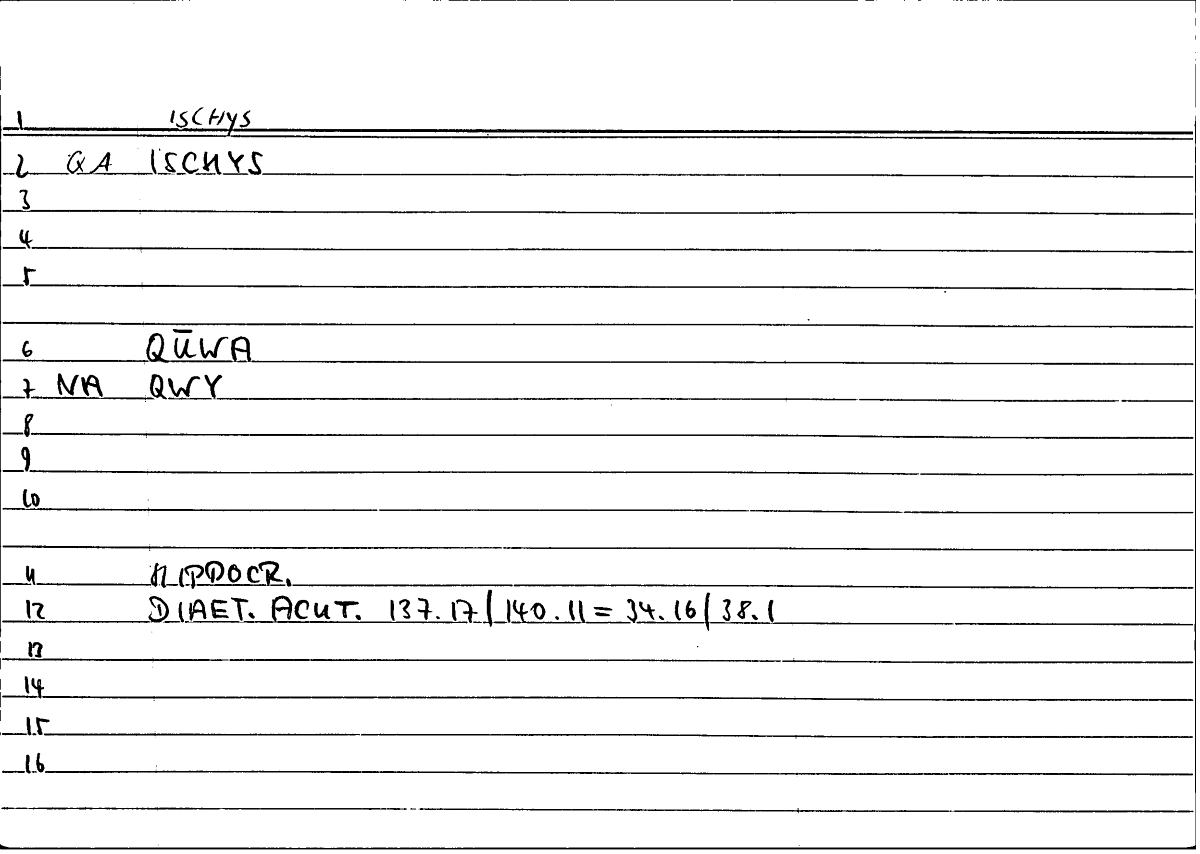 1 ISCHYS
2 QA ISCHYS
3
4
5
6 QŪWA
7 NA QWY
8
9
10
11 HIPPOCR.
12 DIAET. ACUT. 137.17/140.11 = 34.16/38.1
13
14
15
16